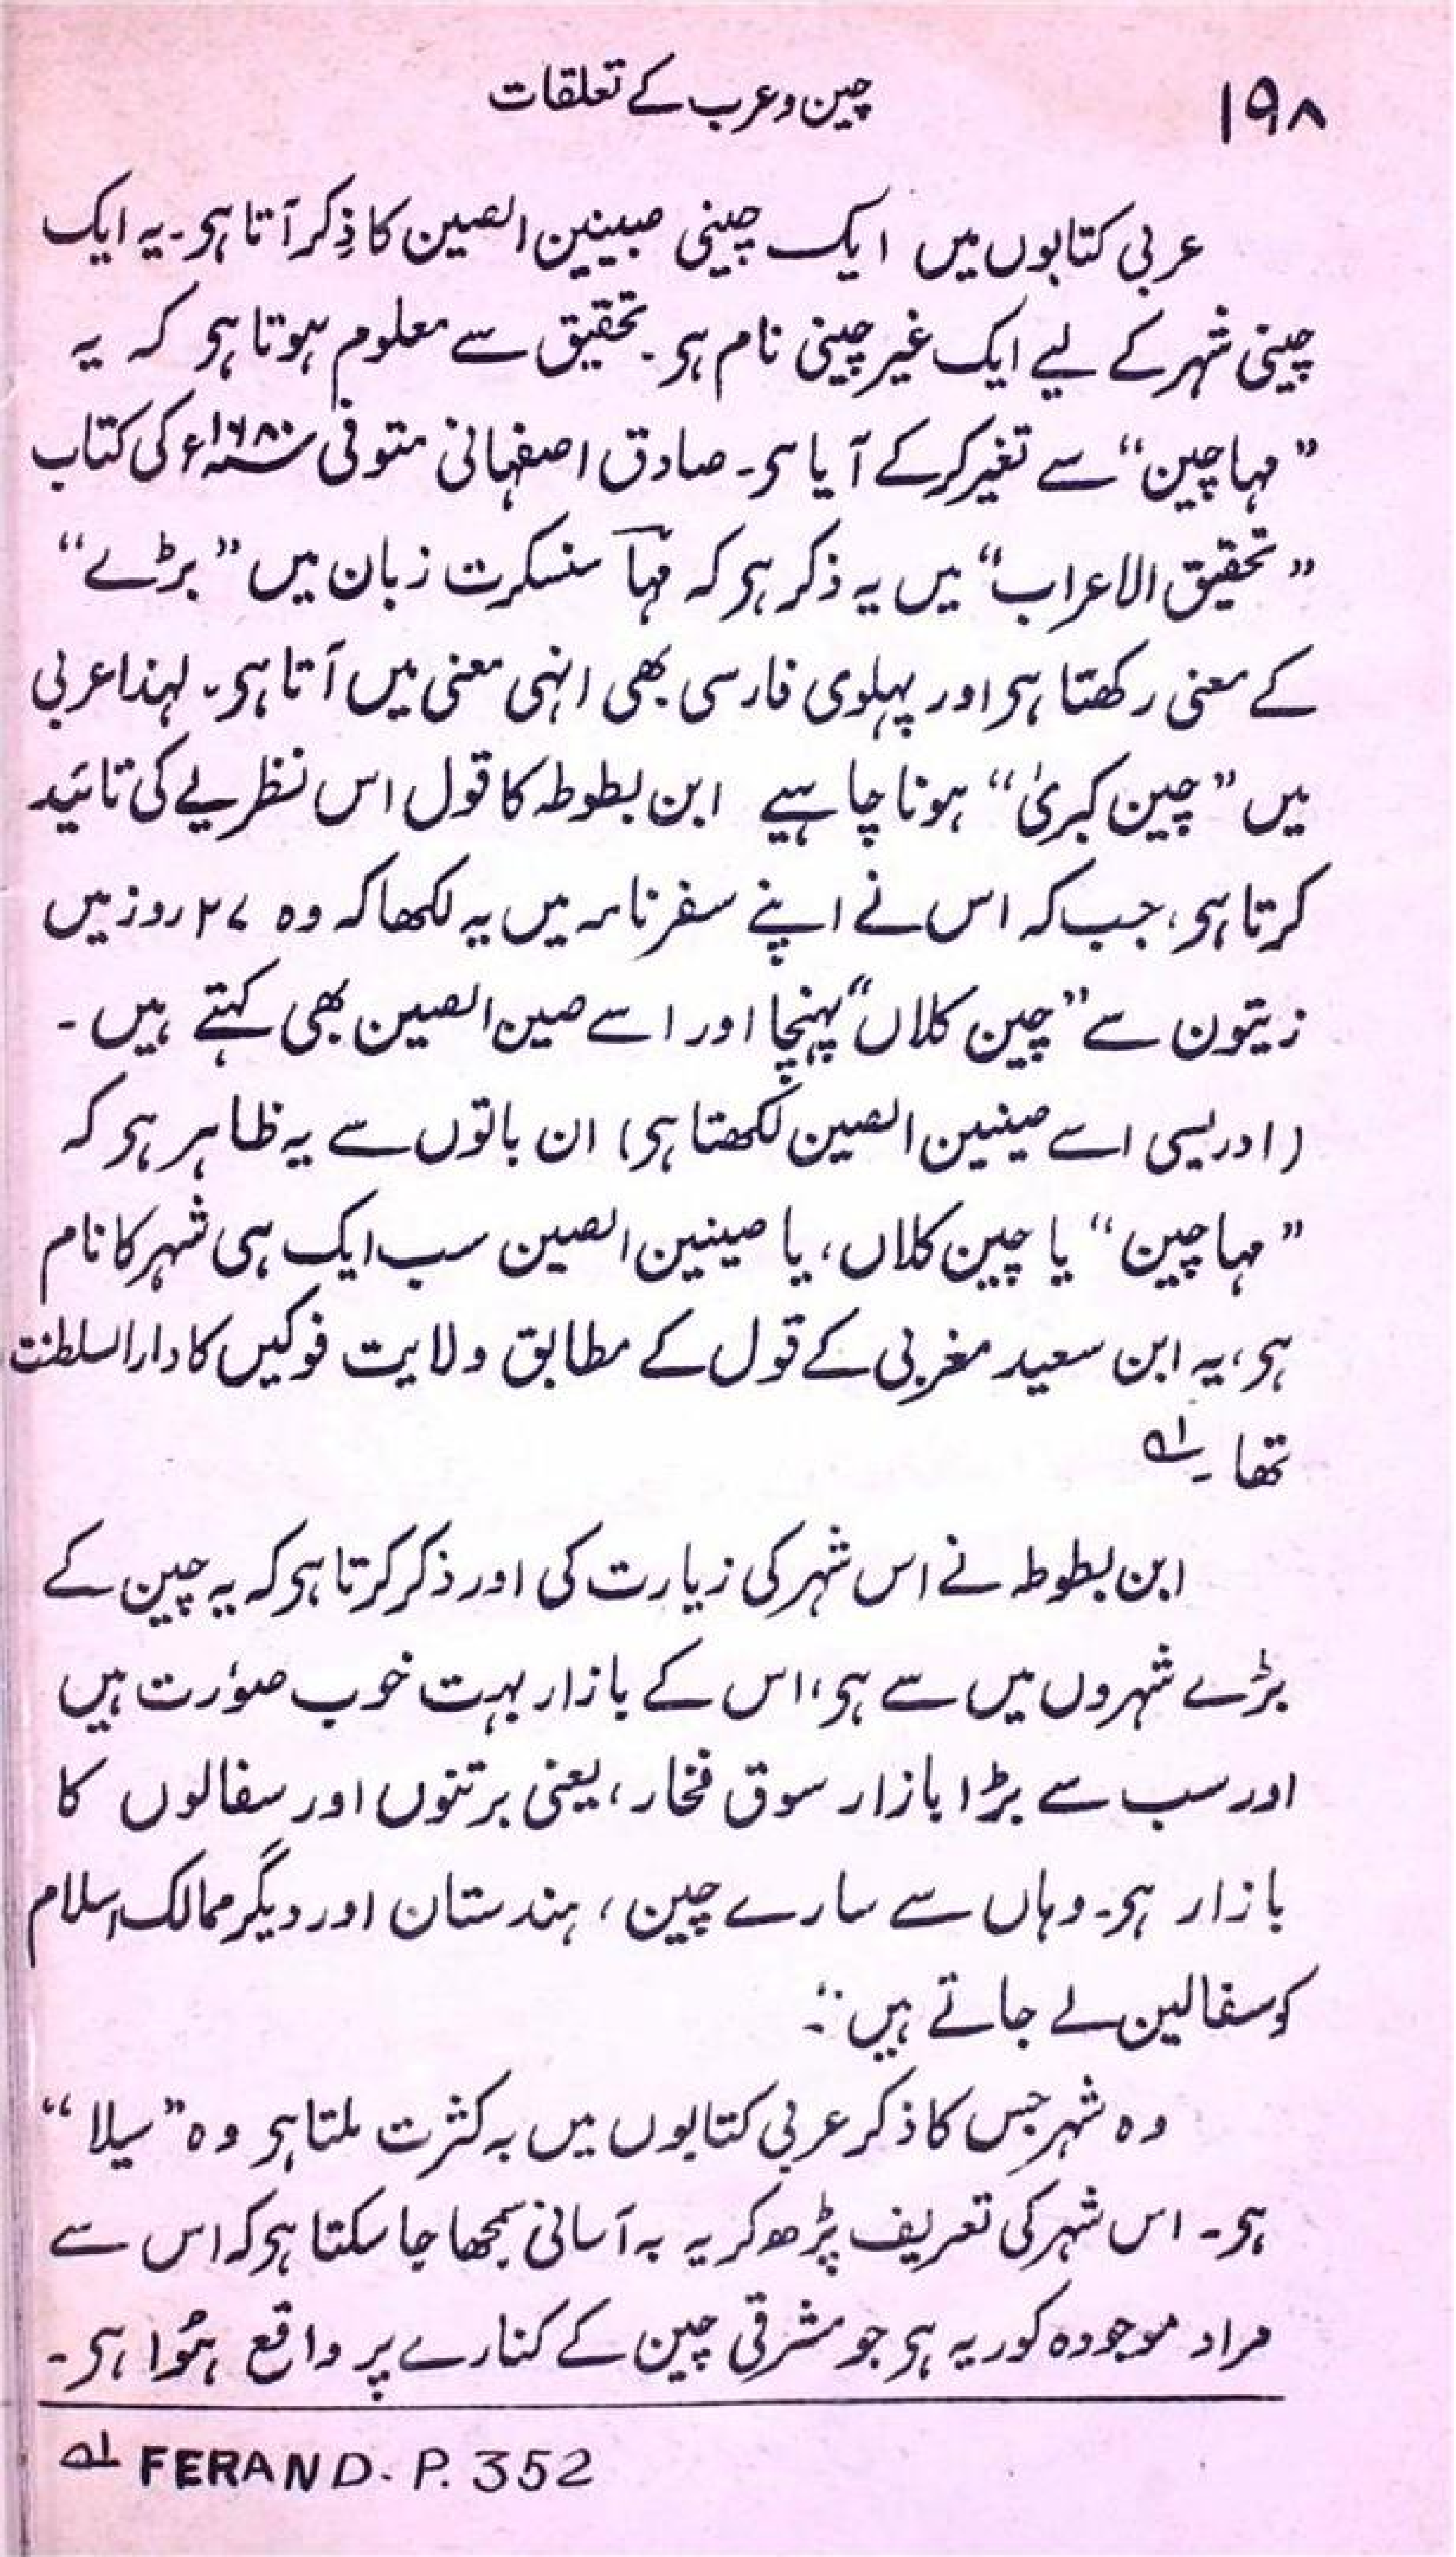 ۱۹۸
چین و عرب کے تعلقات
عربی کتابوں میں ایک چینی صینین الصین کا ذِکر آتا ہی۔ یہ ایک
چینی شہر کے لیے ایک غیر چینی نام ہی۔ تحقیق سے معلوم ہوتا ہی کہ یہ
”مہا چین“ سے تغیر کرکے آیا ہی۔ صادق اصفہانی متوفی ۱۶۸۰ء کی کتاب
”تحقیق الاعراب“ میں یہ ذکر ہی کہ مہا سنسکرت زبان میں ”بڑے“
کے معنی رکھتا ہی اور پہلوی فارسی بھی انہی معنی میں آتا ہی۔ لہذا عربی
میں ”چین کبریٰ“ ہونا چاہیے ابن بطوطہ کا قول اس نظریے کی تائید
کرتا ہی، جب کہ اس نے اپنے سفرنامہ میں یہ لکھا کہ وہ ۲۷ روز میں
زیتون سے ”چین کلاں“ پہنچا اور اسے صین الصین بھی کہتے ہیں۔
(ادریسی اسے صینین الصین لکھتا ہی) ان باتوں سے یہ ظاہر ہی کہ
”مہا چین“ یا چین کلاں، یا صینین الصین سب ایک ہی شہر کا نام
ہی، یہ ابن سعید مغربی کے قول کے مطابق ولایت فوکیں کا دارالسلطنت
تھا۔ ۱؎
ابن بطوطہ نے اس شہر کی زیارت کی اور ذکر کرتا ہی کہ یہ چین کے
بڑے شہروں میں سے ہی، اس کے بازار بہت خوب صوُرت ہیں
اور سب سے بڑا بازار سوق فخار، یعنی برتنوں اور سفالوں کا
بازار ہی۔ وہاں سے سارے چین، ہندستان اور دیگر ممالک اسلام
کو سفالین لے جاتے ہیں“۔
وہ شہر جس کا ذکر عربی کتابوں میں بہ کثرت ملتا ہی وہ ”سیلا“
ہی۔ اس شہر کی تعریف پڑھ کر یہ بہ آسانی سمجھا جا سکتا ہی کہ اس سے
مراد موجودہ کوریہ ہی جو مشرقی چین کے کنارے پر واقع ہُوا ہی۔
۱؎ FERAND. P. 352